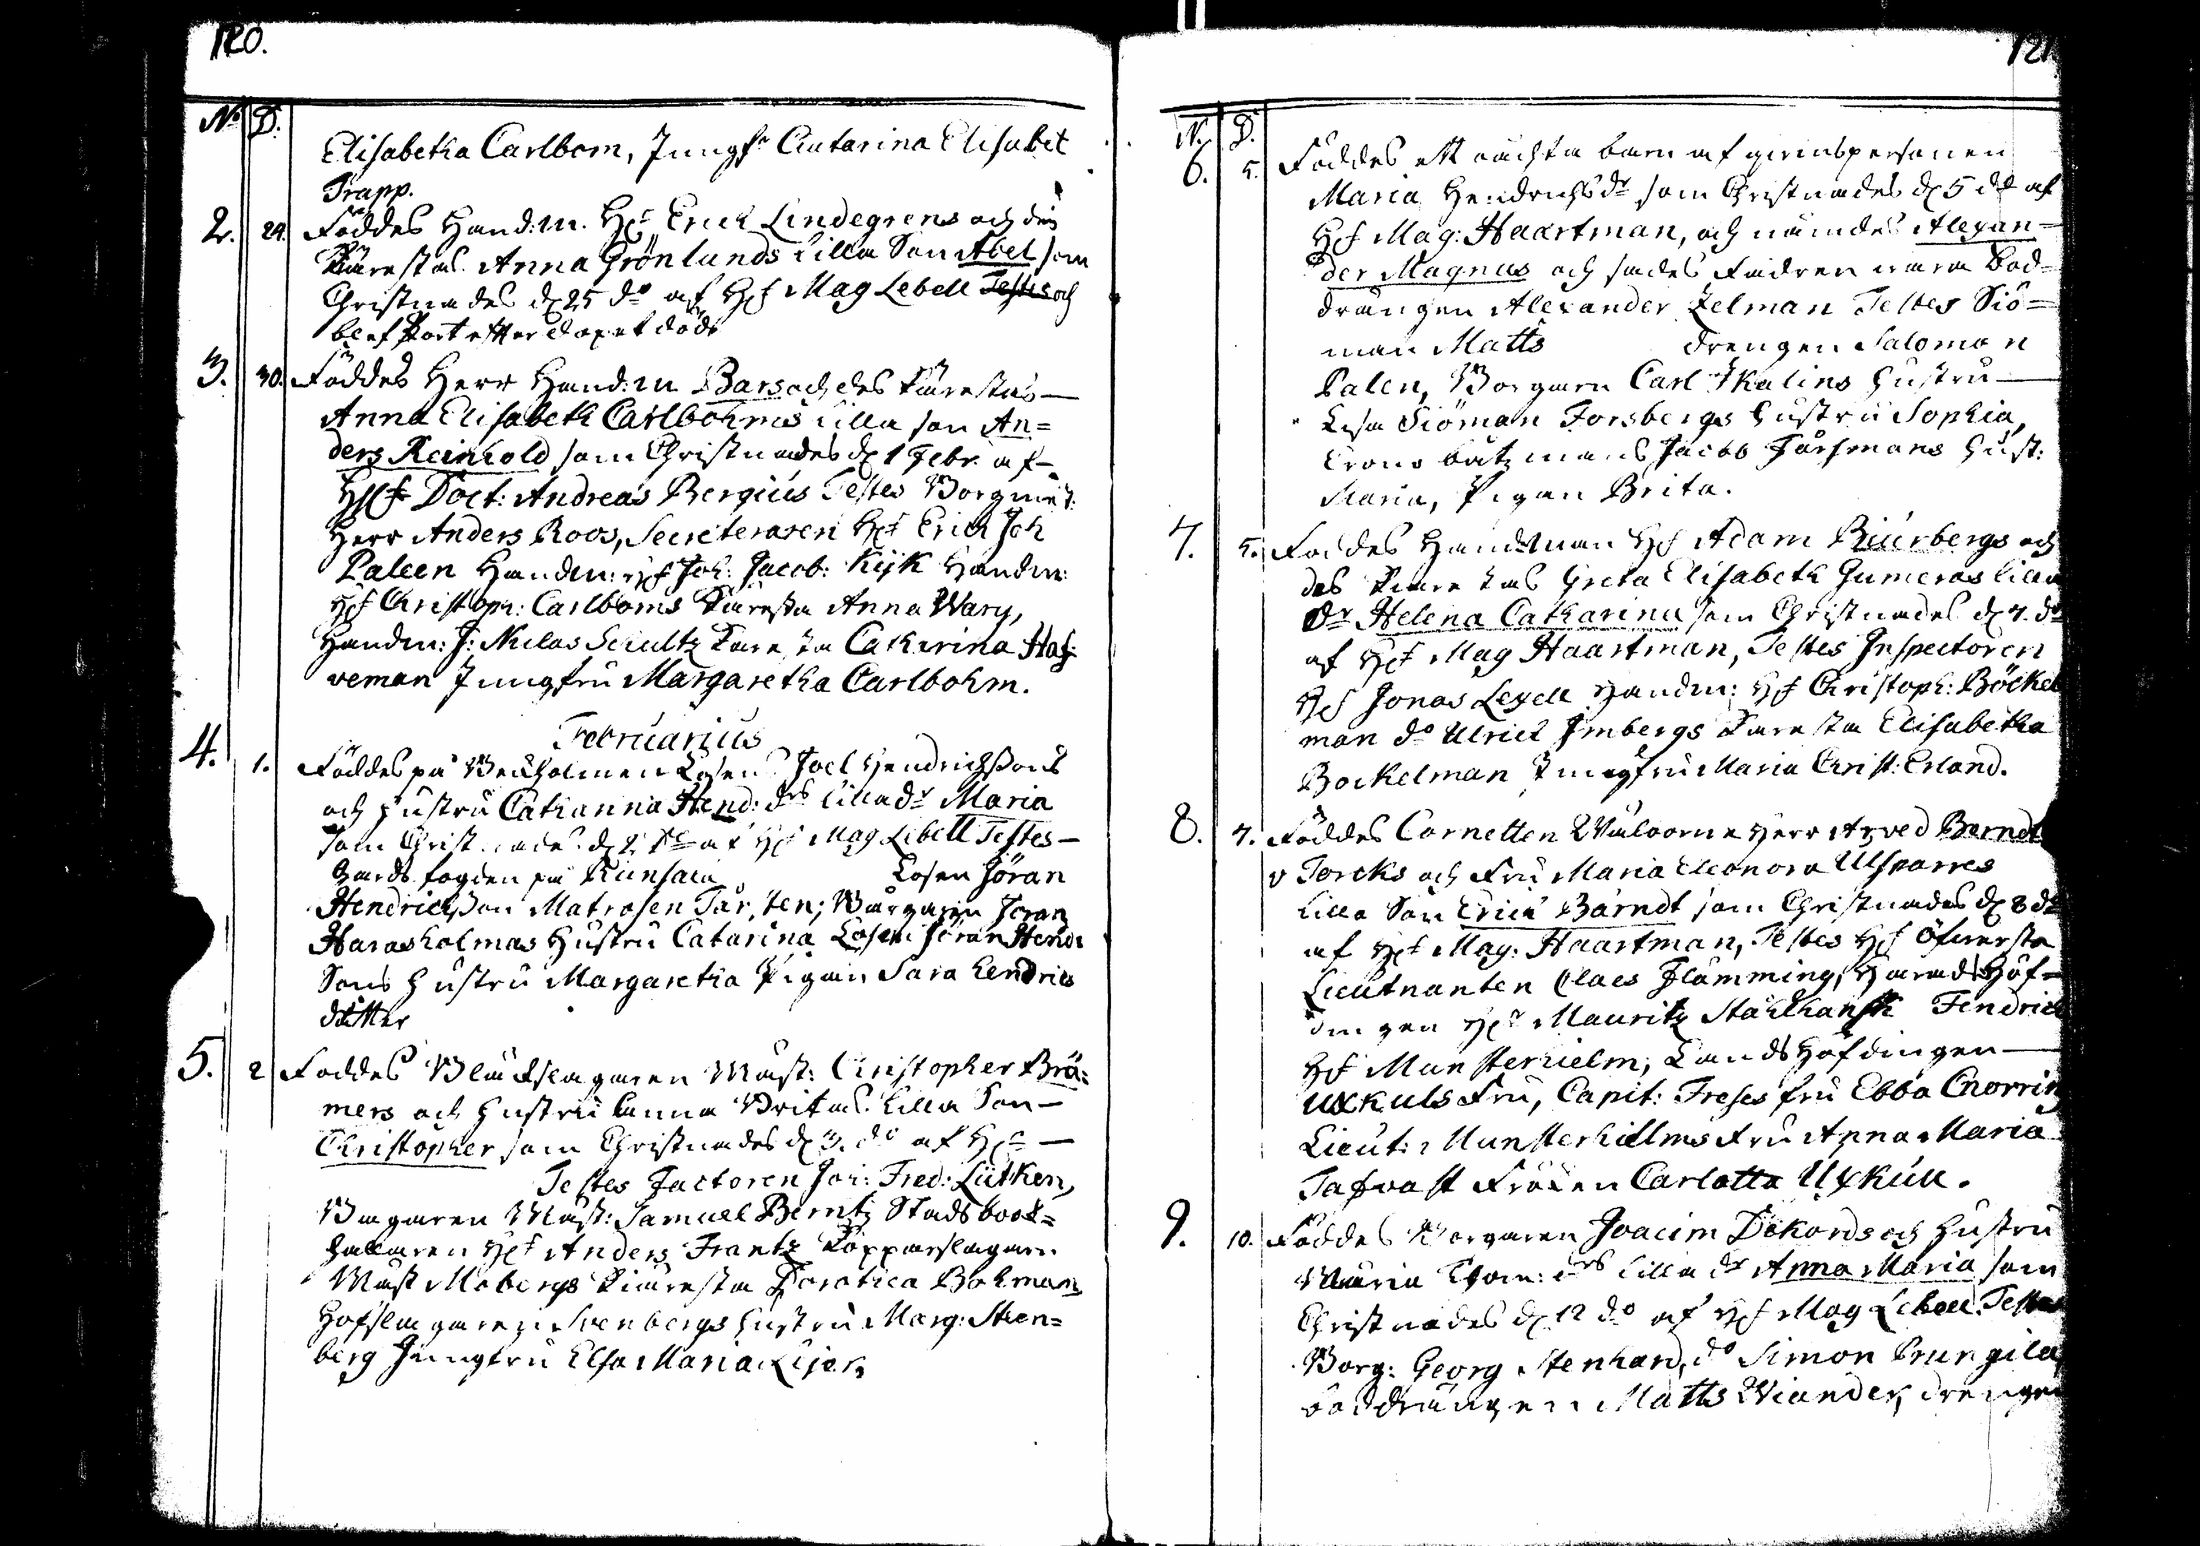 120.
No D.
Elisabetha Carlbom, Jungfr Catarina Elisabet
Trapp.
2. 24. Föddes Hand:m. Hr Erich Lindegrens och des
Kärestas Anna Grönlunds lilla Son Abel som
Christnades d 25 do af Hr Mag Lebell Testes och
blef kort efter dopet död
3. 30. Föddes Herr Hand:m Bars och des Kärestas
Anna Elisabeth Carlbohms lilla son An=
ders Reinhold som Christnades d 1 Febr. af
Hr Doct: Andreas Bergius Testes Borgmest:
Herr Anders Roos, Secreteraren Hr Erich Joh
Paleen Handm: Hr Joh: Jacob: Kijk Handm:
Hr Christoph: Carlboms Käresta Anna Wary,
Handm: J: Niclas Schultz Käresta Catharina Ha
veman Jungfru Margaretha Carlbohm.
Februarius
4. 1. Föddes på Beckholmen Losen Joel Hendrichssons
och hustru Catharina Hend: drs lilla dr Maria
som Christnades d 2 do af Hr Mag Lebell Testes
Gårds fogden på Runsala Losen Jöran
Hendrichsson Matrosen Torsten; Borgaren Jöran
Harasholmas Hustru Catarina Losen Jöran Hend:
Sons hustru Margaretha Pigan Sara Hendrics
dotter
5. 2 Föddes Bläckslagaren Mäst: Christopher Brö=
mers och hustru Anna Britas lilla Son
Christopher som Christnades d 3. do af Hr
Testes Factoren Joh: Fred: Lütken,
Bagaren Mäst: Samuel Berntz Stads book=
hallaren Hr Anders Frantz Kopparslagaren
Mäst Mobergs Käresta Dorotica Bohman
Hofslagaren Svenbergs hustru Marg: Sten=
berg Jungfru Elsa Maria
121
N. D.
6. 5. Föddes ett oächta barn af qvinspersonen
Maria Hendrichsdr som Christnades d 5 do af
Hr Mag: Haartman, och nämdes Alexan=
der Magnus och sades Fadren wara Bod=
drängen Alexander Zelman Testes Siö=
man Matts drengen Salomon
Palen, Borgaren Carl Thalins hustru
Lisa Siöman Forsbergs hustru Sophia,
Crono båtzmans Jacob Forsmans hust:
Maria, Pigan Brita.
7. 5. Foddes Handelsman Hr Adam Biurbergs och
des Kärestas Greta Elisabeth Gumeras lilla
dr Helena Catharina som Christnades d 7. do
af Hr Mag Haartman, Testes Inspectoren
Hr Jonas Lexell Handm: Hr Christoph: Böckel
man do Ulrick Imbergs Käresta Elisabetha
Bockelman Jungfru Maria Christ: Erland.
8. 7. Föddes Cornetten Wälborne Herr Arved Berndt
v Torcks och Fru Maria Eleonora Ulfsparres
lilla Son Erich Barndt som Christnades d 8 do
af Hr Mag: Haartman, Testes Hr Öfwersta
Lieutnanten Claes Flämming, Härads Höf=
dingen Hr Mauritz Stålhansk Fendrich
Hr Munsterhielm, Lands Höfdingen
Uxkuls Fru, Capit: Freses fru Ebba Cnorring
Lieut: Munsterhielms Fru Anna Maria
Tafwast Fröken Carlotta Uxkull.
9. 10. Föddes Borgaren Joacim Dikords och hustru
Maria drs lilla dr Anna Maria som
Christnades d 12 do af Hr Mag Lebell. Testes
Borg: Georg Stenhard, do Simon Prungila,
boddrängen Matts Wiander, drengen